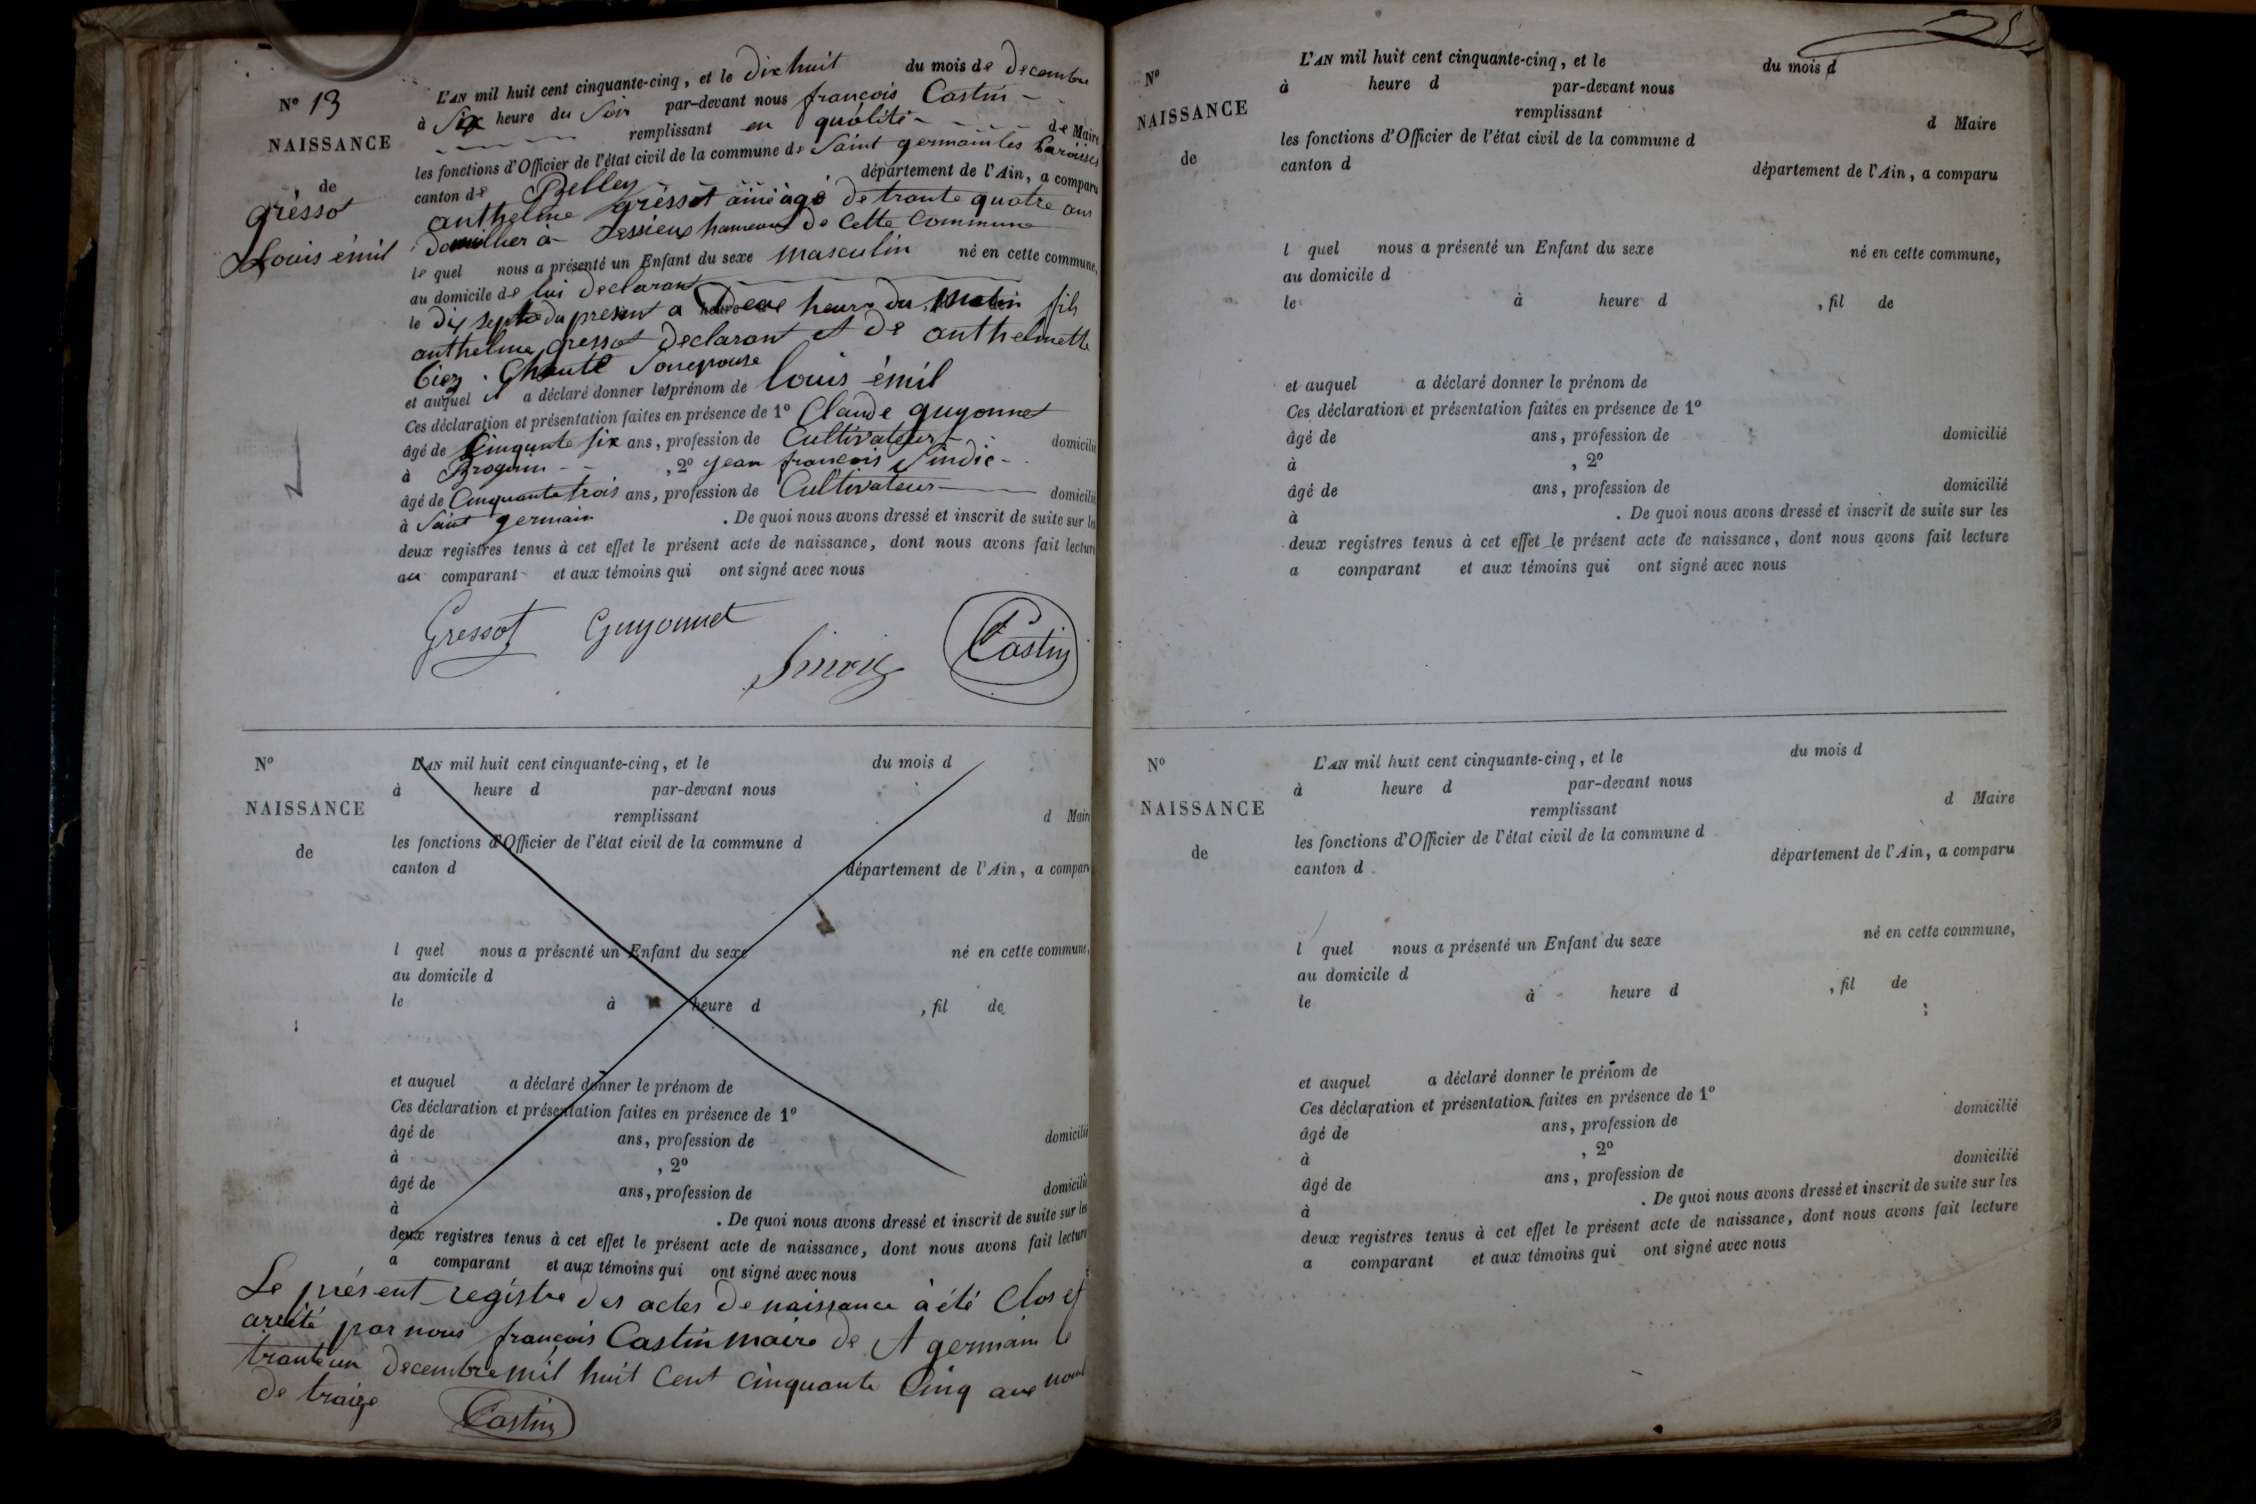 N° 13
NAISSANCE
de
gressot
Louis émil
L'AN mil huit cent cinquante-cinq, et le dix huit du mois de decembre
à Six heure du Soir par-devant nous françois Castin
remplissant en qualité de Maire
les fonctions d'Officier de l'état civil de la commune de Saint germain les Paroisses
canton de Belley département de l'Ain, a comparu
anthelme gressot ainé âgé de trante quatre ans
domicilier à Essieux hameau de Cette Commune
le quel nous a présenté un Enfant du sexe masculin né en cette commune,
au domicile de lui declarant
le dix sept du present a Deux heure du Matin fils
anthelme gressot declarant et de anthelmette
son epouse
et auquel il a déclaré donner les prénom de Louis émil
Ces déclaration et présentation faites en présence de 1° Claude guyonnet
âgé de Cinquante six ans, profession de Cultivateur domicilié
à Brognin , 2° jean françois Sindic
âgé de Cinquante trois ans, profession de Cultivateur domicilié
à Saint germain . De quoi nous avons dressé et inscrit de suite sur les
deux registres tenus à cet effet le présent acte de naissance, dont nous avons fait lecture
au comparant et aux témoins qui ont signé avec nous
Gressot Guyonnet
Sindic Castin
N°
NAISSANCE
de
L'AN mil huit cent cinquante-cinq, et le du mois d
à heure d par-devant nous
remplissant d Maire
les fonctions d'Officier de l'état civil de la commune d
canton d département de l'Ain, a comparu
l quel nous a présenté un Enfant du sexe né en cette commune,
au domicile d
le à heure d , fil de
et auquel a déclaré donner le prénom de
Ces déclaration et présentation faites en présence de 1°
âgé de ans, profession de domicilié
à , 2°
âgé de ans, profession de domicilié
à . De quoi nous avons dressé et inscrit de suite sur les
deux registres tenus à cet effet le présent acte de naissance, dont nous avons fait lecture
a comparant et aux témoins qui ont signé avec nous
Le présent registre des actes de naissance à été Clos et
areité par nous françois Castin maire de St germain le
trante un decembre mil huit Cent cinquante Cinq au nombre
de traize Castin
N°
NAISSANCE
de
L'AN mil huit cent cinquante-cinq, et le du mois d
à heure d par-devant nous
remplissant d Maire
les fonctions d'Officier de l'état civil de la commune d
canton d département de l'Ain, a comparu
l quel nous a présenté un Enfant du sexe né en cette commune,
au domicile d
le à heure d , fil de
et auquel a déclaré donner le prénom de
Ces déclaration et présentation faites en présence de 1°
âgé de ans, profession de domicilié
à , 2°
âgé de ans, profession de domicilié
à . De quoi nous avons dressé et inscrit de suite sur les
deux registres tenus à cet effet le présent acte de naissance, dont nous avons fait lecture
a comparant et aux témoins qui ont signé avec nous
N°
NAISSANCE
de
L'AN mil huit cent cinquante-cinq, et le du mois d
à heure d par-devant nous
remplissant d Maire
les fonctions d'Officier de l'état civil de la commune d
canton d département de l'Ain, a comparu
l quel nous a présenté un Enfant du sexe né en cette commune,
au domicile d
le à heure d , fil de
et auquel a déclaré donner le prénom de
Ces déclaration et présentation faites en présence de 1°
âgé de ans, profession de domicilié
à , 2°
âgé de ans, profession de domicilié
à . De quoi nous avons dressé et inscrit de suite sur les
deux registres tenus à cet effet le présent acte de naissance, dont nous avons fait lecture
a comparant et aux témoins qui ont signé avec nous